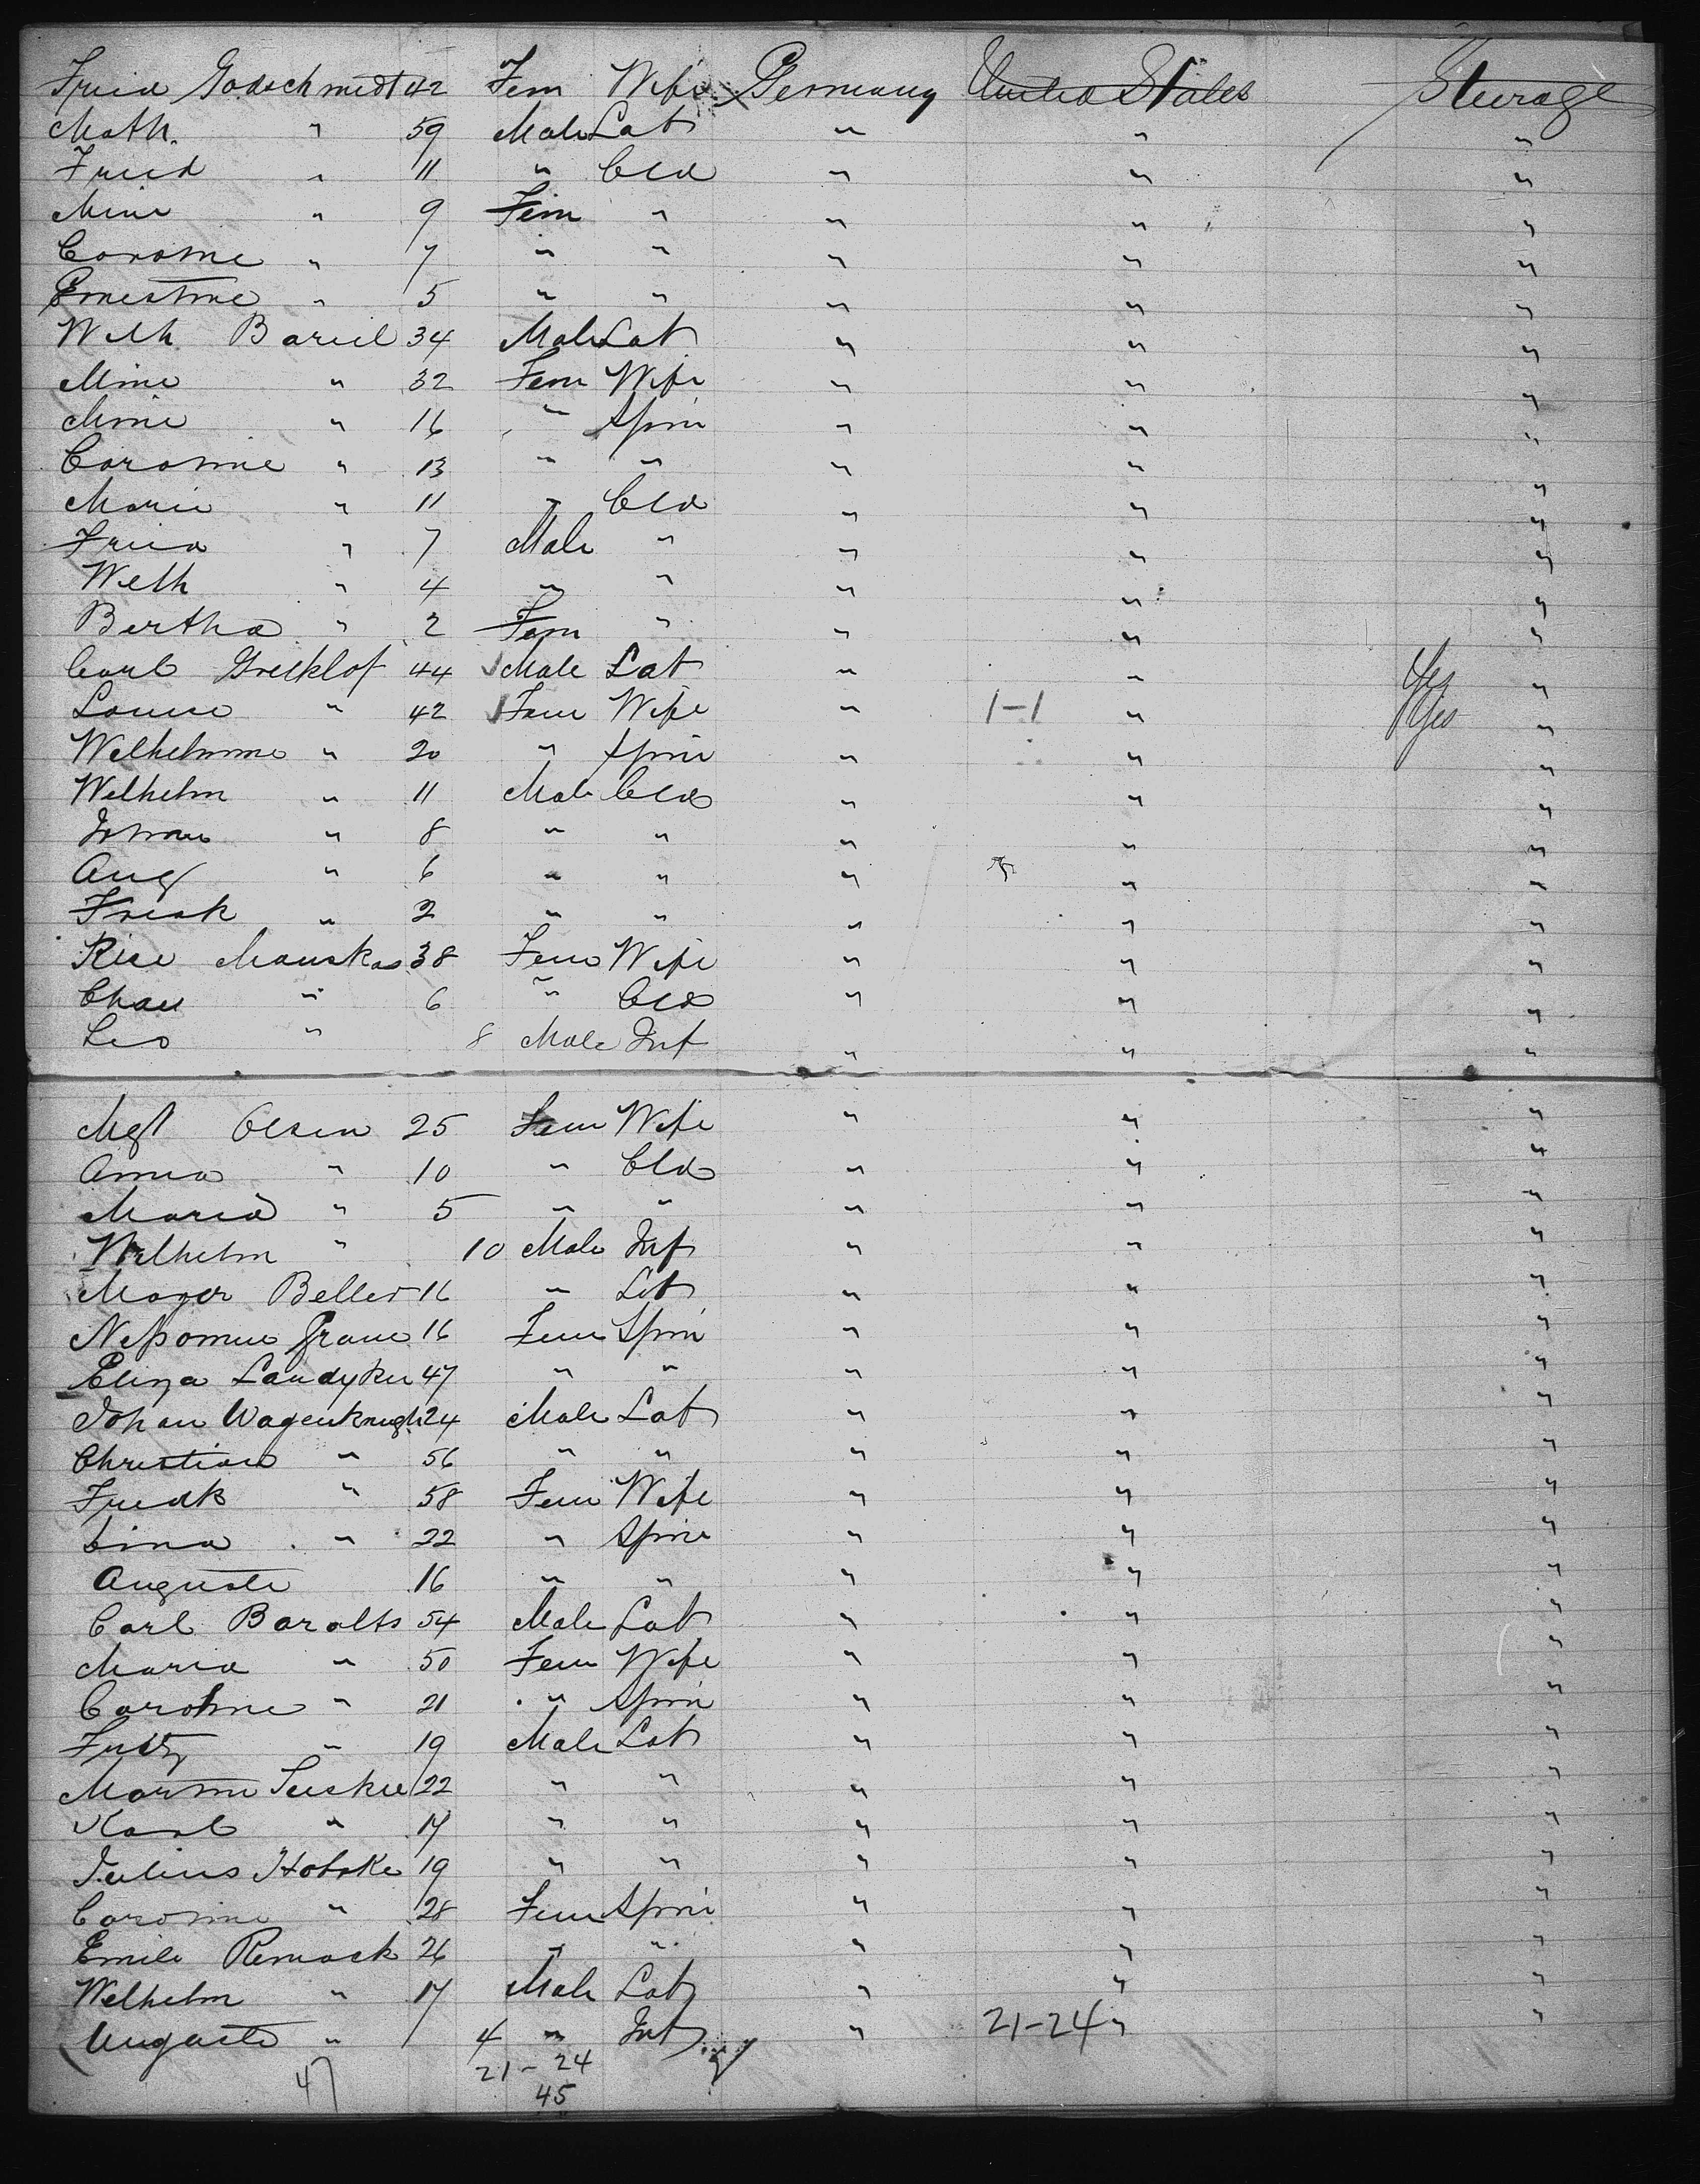 Fried Godschmidt 42 Fem Wife Germany United States Steerage
Math. " 59 Male Lab " " "
Fried " 11 " Cld " " "
Mine " 9 Fem " " " "
Caroline " 7 " " " " "
Ernestine " 5 " " " " "
Wilh Bariel 34 Male Lab " " "
Mine " 32 Fem Wife " " "
Mine " 16 " Spin " " "
Caroline " 13 " " " " "
Marie " 11 " Cld " " "
Fried " 7 Male " " " "
Wilh " 4 " " " " "
Bertha " 2 Fem " " " "
Carl Grelklof 44 Male Lab " " Yes "
Louise " 42 Fem Wife " 1-1 " Yes "
Wilhelmine " 20 " Spin " " "
Wilhelm " 11 Male Cld " " "
Johan " 8 " " " " "
Aug " 6 " " " " "
Fredk " 2 " " " " "
Rise Mouskas 38 Fem Wife " " "
Chau " 6 " Cld " " "
Leo " 8 Male Inf " " "
Mgt Olsen 25 Fem Wife " " "
Anna " 10 " Cld " " "
Maria " 5 " " " " "
Wilhelm " 10 Male Inf " " "
Mayer Beller 16 " Lab " " "
Nepomue Frane 16 Fem Spin " " "
Eliza Landyker 47 " " " " "
Johan Wagenknight 24 Male Lab " " "
Christian " 56 " " " " "
Fredk " 58 Fem Wife " " "
Lina " 22 " Spin " " "
Auguste 16 " " " " "
Carl Baralts 54 Male Lab " " "
Maria " 50 Fem Wife " " "
Caroline " 21 " Spin " " "
Fritz " 19 Male Lab " " "
Martin Teeskee 22 " " " " "
Karl " 17 " " " " "
Julius Hobske 19 " " " " "
Caroline " 28 Fem Spin " " "
Emile Remack 26 " " " " "
Wilhelm " 17 Male Lab " " "
Auguste " 4 " Inf " 21-24 " "
21-24
47 45